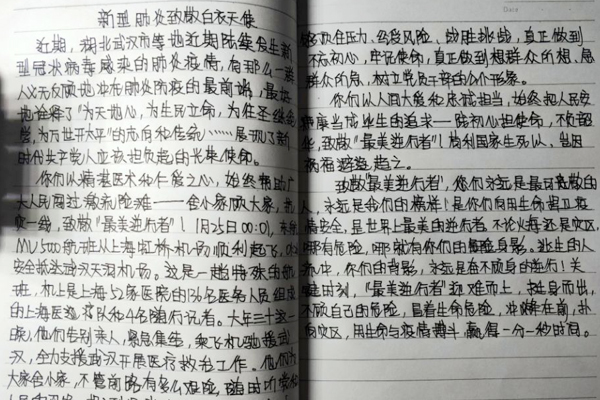 新型肺炎致敬白衣天使
近期,湖北武汉市等地近期陆续发生新
型冠状病毒感染的肺炎疫情,有那么一群
人义无反顾地冲在肺炎防疫的最前端,最好
地诠释了"为天地心,为生民立命,为往圣继绝
学,为万世开太平"的志向和传统……展现了新
时代共产党人应该担负起的光荣使命。
你们以精湛医术和仁爱之心,始终帮助广
大人民度过艰险难——舍小家顾大家,
实一线,致敬"最美逆行者"!1月25日00:01,东航
MU5000航班从上海虹桥机场顺利起飞,
安全抵达武汉天河机场。这是一趟特殊的航
班,机上是上海52家医院的136名医务人员组成
的上海医疗队和4名随行记者。大年三十
晚,他们告别亲人,紧急集结,乘飞机驰援武
汉,全力支援武汉开展医疗救治工作。他们为
大家舍小家,不管前路有多么难险,随时听党和
够顶住压力、经受风险、战胜挑战,真正做到
不忘初心,牢记使命,真正做到想群众所想、急
群众所急,树立党员干部的个个形象。
你们以人间大爱和忠诚担当,始终把人民安
康当成毕生的追求——践初心担使命,不负韶
华,致敬"最美逆行者"!苟利国家生死以,岂因
祸福避趋之。
致敬"最美逆行者",你们永远是最可敬的
人,永远是我们的榜样!是你们用生命捍卫疫
情安全,是世界上最美的逆行者,不论火海还是灾区,
哪有危险,哪就有你们的身影。逃生的人
海中,你们的背影,永远是奋不顾身的逆行!关
键时刻,"最美逆行者"迎难而上,挺身而出,
不顾自己的危险,冒着生命危险,冲锋在前,扑
向灾区,用生命与疫情搏斗,赢得一分一秒时间。